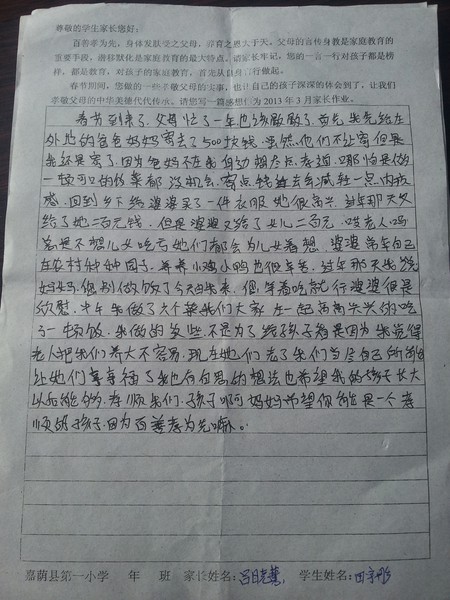 尊敬的学生家长您好：
百善孝为先，身体发肤受之父母，养育之恩大于天。父母的言传身教是家庭教育的
重要手段，潜移默化是家庭教育的最大特点。请家长牢记，您的一言一行对孩子都是榜
样，都是教育，对孩子的家庭教育，首先从自身言行做起。
春节期间，您做的一些孝敬父母的实事，也让自己的孩子深深的体会到了，让我们
孝敬父母的中华美德代代传承。请您写一篇感想作为2013年3月家长作业。
春节到来了，父母忙了一年也该 了，首先我先给在
外地的爸爸妈妈寄去了500块钱，虽然他们不让寄但是
我还是寄了，因为爸妈不在我身边想尽点孝道，哪怕是做
一顿可口的饭菜都没机会，寄点钱 去减轻一点内疚
感，回到乡下给婆婆买了一件衣服她很高兴，过年那天又
给了她二百元钱，但是婆婆又给了女儿二百元，哎老人吗
总是不想儿女吃亏她们都会为儿女着想，婆婆常年自己
在农村种种园子，养养小鸡小鸭也很辛苦，过年那天我说
妈妈您别做饭了今天由我来，您等着吃就行婆婆很是
欣慰，中午我做了六个菜我们大家在一起高高兴兴的吃
了一顿饭，我做的这些不是为了给孩子看是因为我觉得
老人把我们养大不容易，现在她们老了我们当尽自己所能
让她们享享福了我也有自思的想法也希望我的孩子长大
以后能够孝顺我们，孩子啊妈妈希望你能是一个孝
顺的孩子，因为百善孝为先嘛。
嘉荫县第一小学 年 班 家长姓名： 学生姓名：